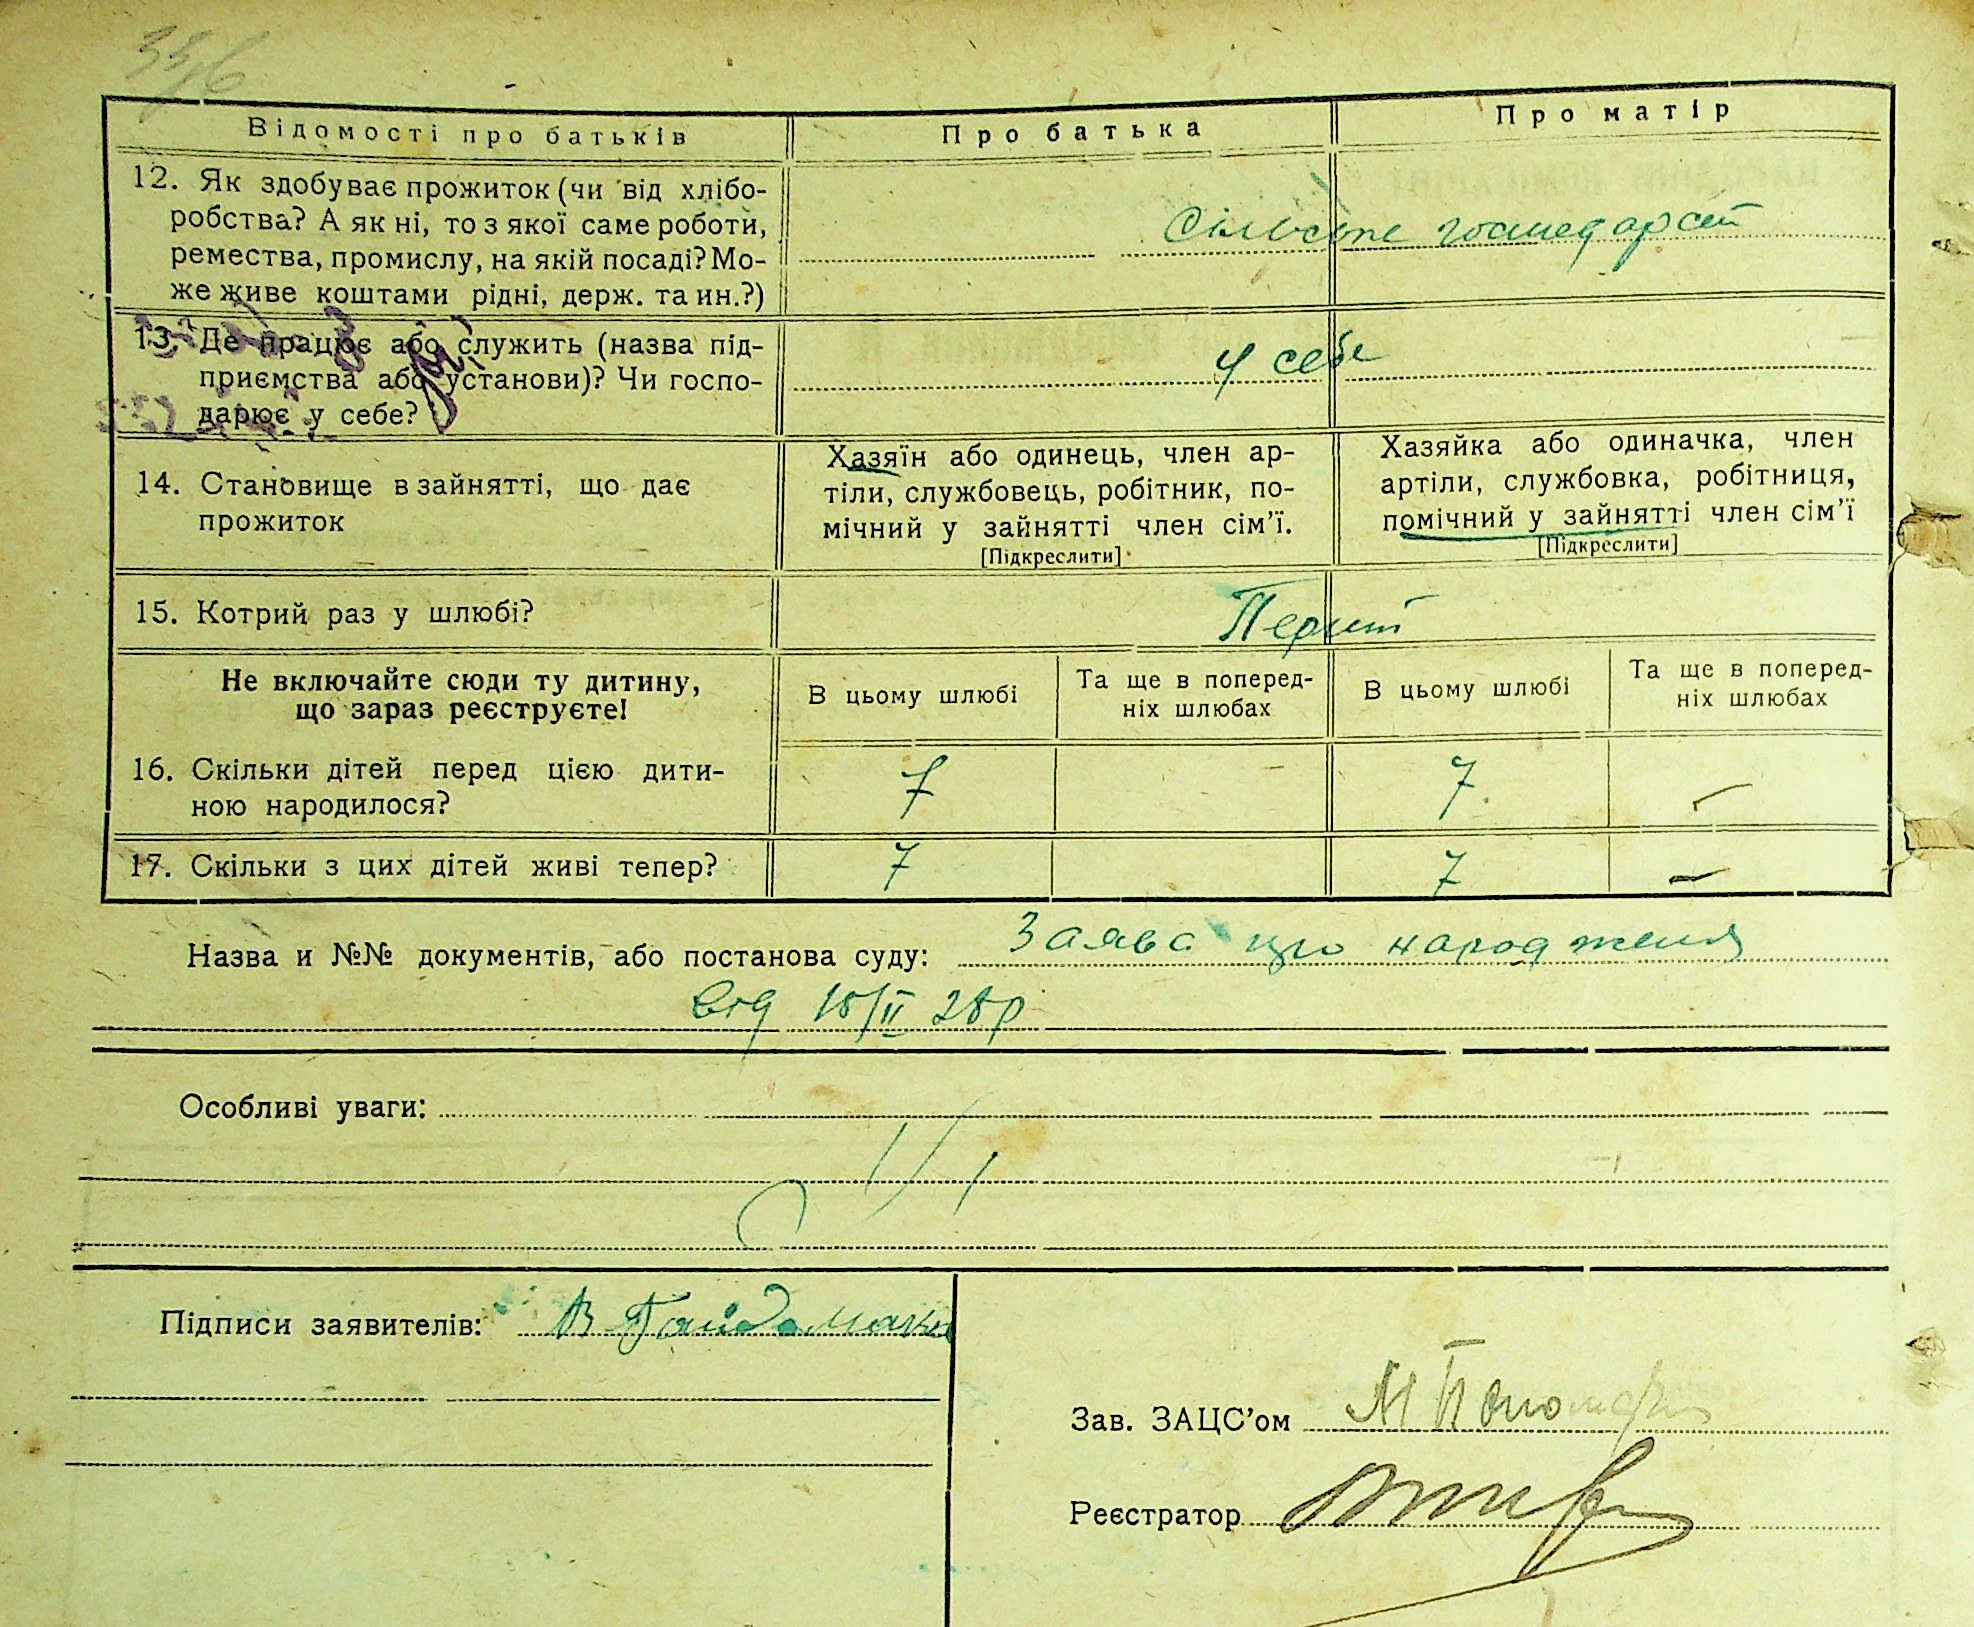 Відомості про батьків
Про батька
Про матір
12. Як здобуває прожиток (чи від хлібо-
робства? А як ні, то з якої саме роботи,
ремества, промислу, на якій посаді? Мо-
же живе коштами рідні, держ. та ин.?)
Сільське господарст
13. Де працює або служить (назва під-
приємства або установи)? Чи госпо-
дарює у себе?
У себе
14. Становище в зайнятті, що дає
прожиток
Хазяїн або одинець, член ар-
тіли, службовець, робітник, по-
мічний у зайнятті член сім'ї.
[Підкреслити]
Хазяйка або одиначка, член
артіли, службовка, робітниця,
помічний у зайнятті член сім'ї
[Підкреслити]
15. Котрий раз у шлюбі?
Не включайте сюди ту дитину,
що зараз реєструєте!
В цьому шлюбі
Та ще в поперед-
ніх шлюбах
В цьому шлюбі
Та ще в поперед-
ніх шлюбах
16. Скільки дітей перед цією дити-
ною народилося?
7
7
–
17. Скільки з цих дітей живі тепер?
7
7
–
Назва и №№ документів, або постанова суду: Заява про народження
від 18/II 28р
Особливі уваги:
Підписи заявителів: В Гайдамака
Зав. ЗАЦС'ом
Реєстратор